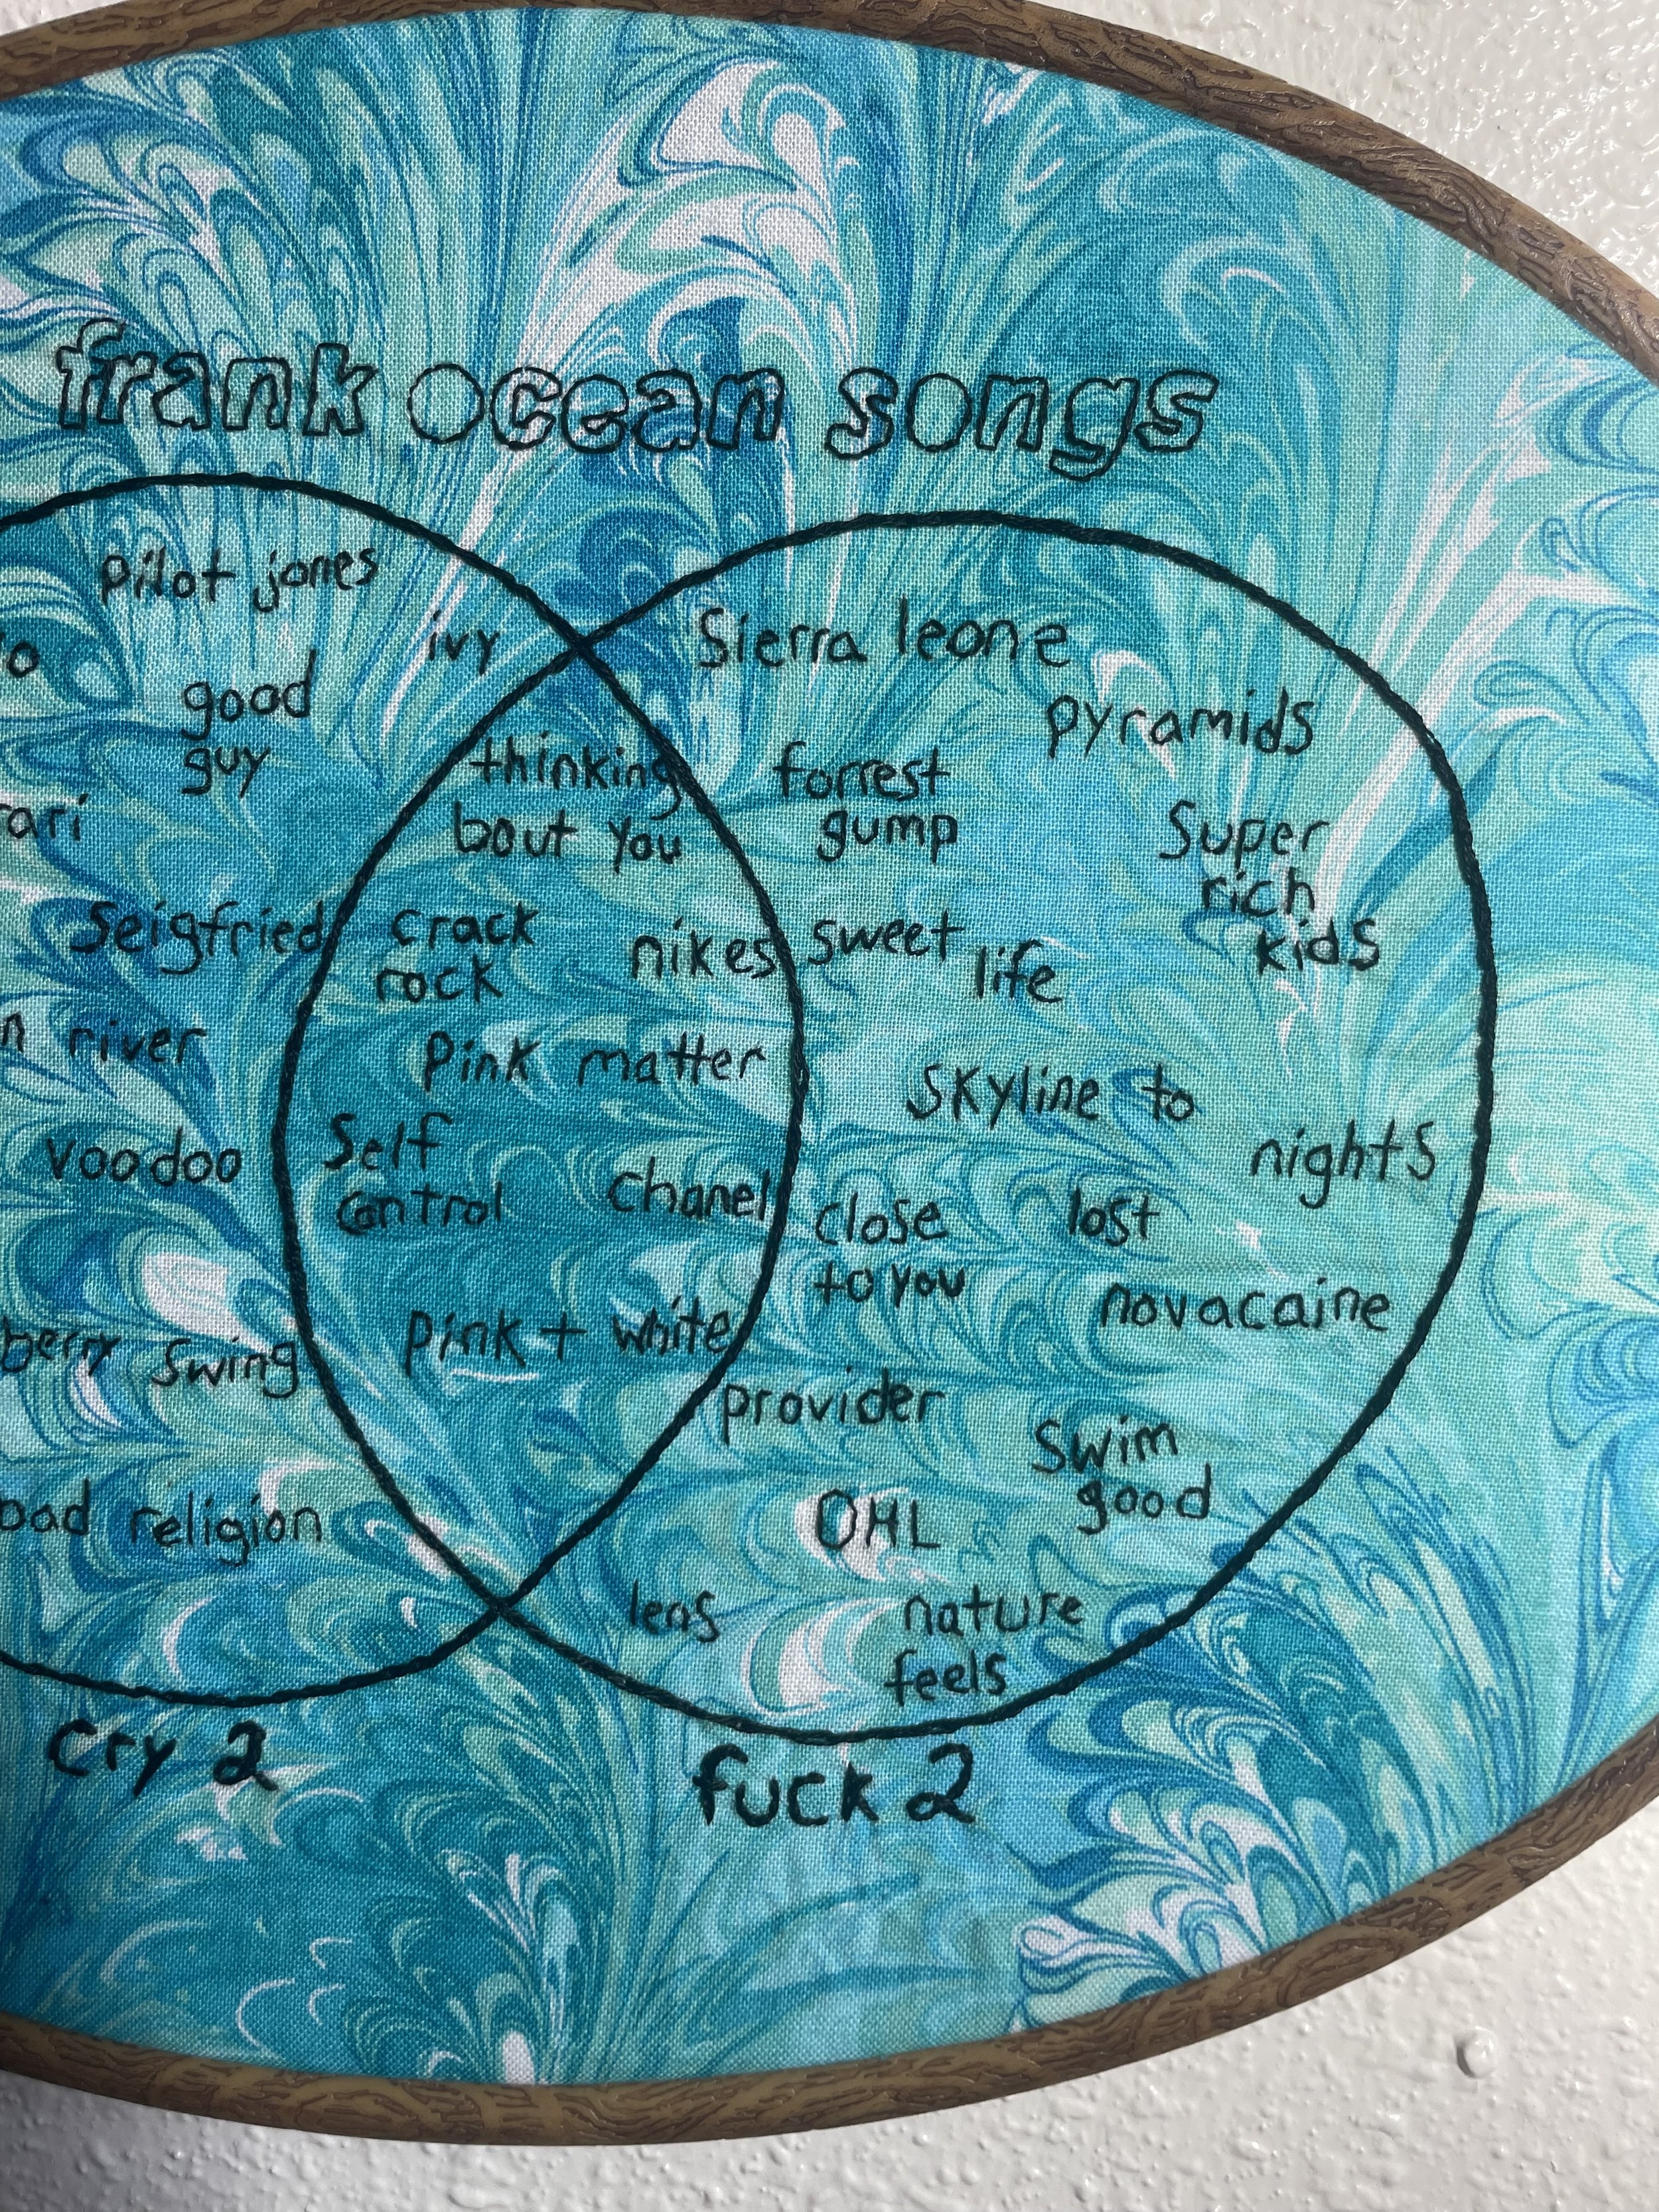 frank ocean songs
pilot jones
ivy
good
guy
Seigfried
river
voodoo
berry swing
bad religion
thinking
bout you
crack
rock
nikes
Pink matter
Self
control
chanel
pink + white
Sierra leone
pyramids
forrest
gump
Super
rich
kids
sweet life
Skyline to
nights
close
to you
lost
novacaine
provider
Swim
good
OHL
lens
nature
feels
cry 2
fuck 2